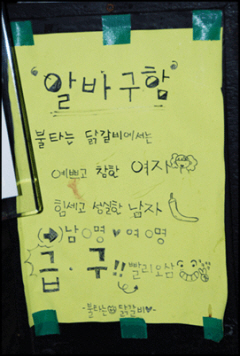 "알바구함"
불타는 닭갈비에서는
예쁘고 착한 여자
힘세고 성실한 남자
(➔) 남 0명 ♥ 여 0명
급·구!! 빨리오삼
-불타는 닭갈비♥-